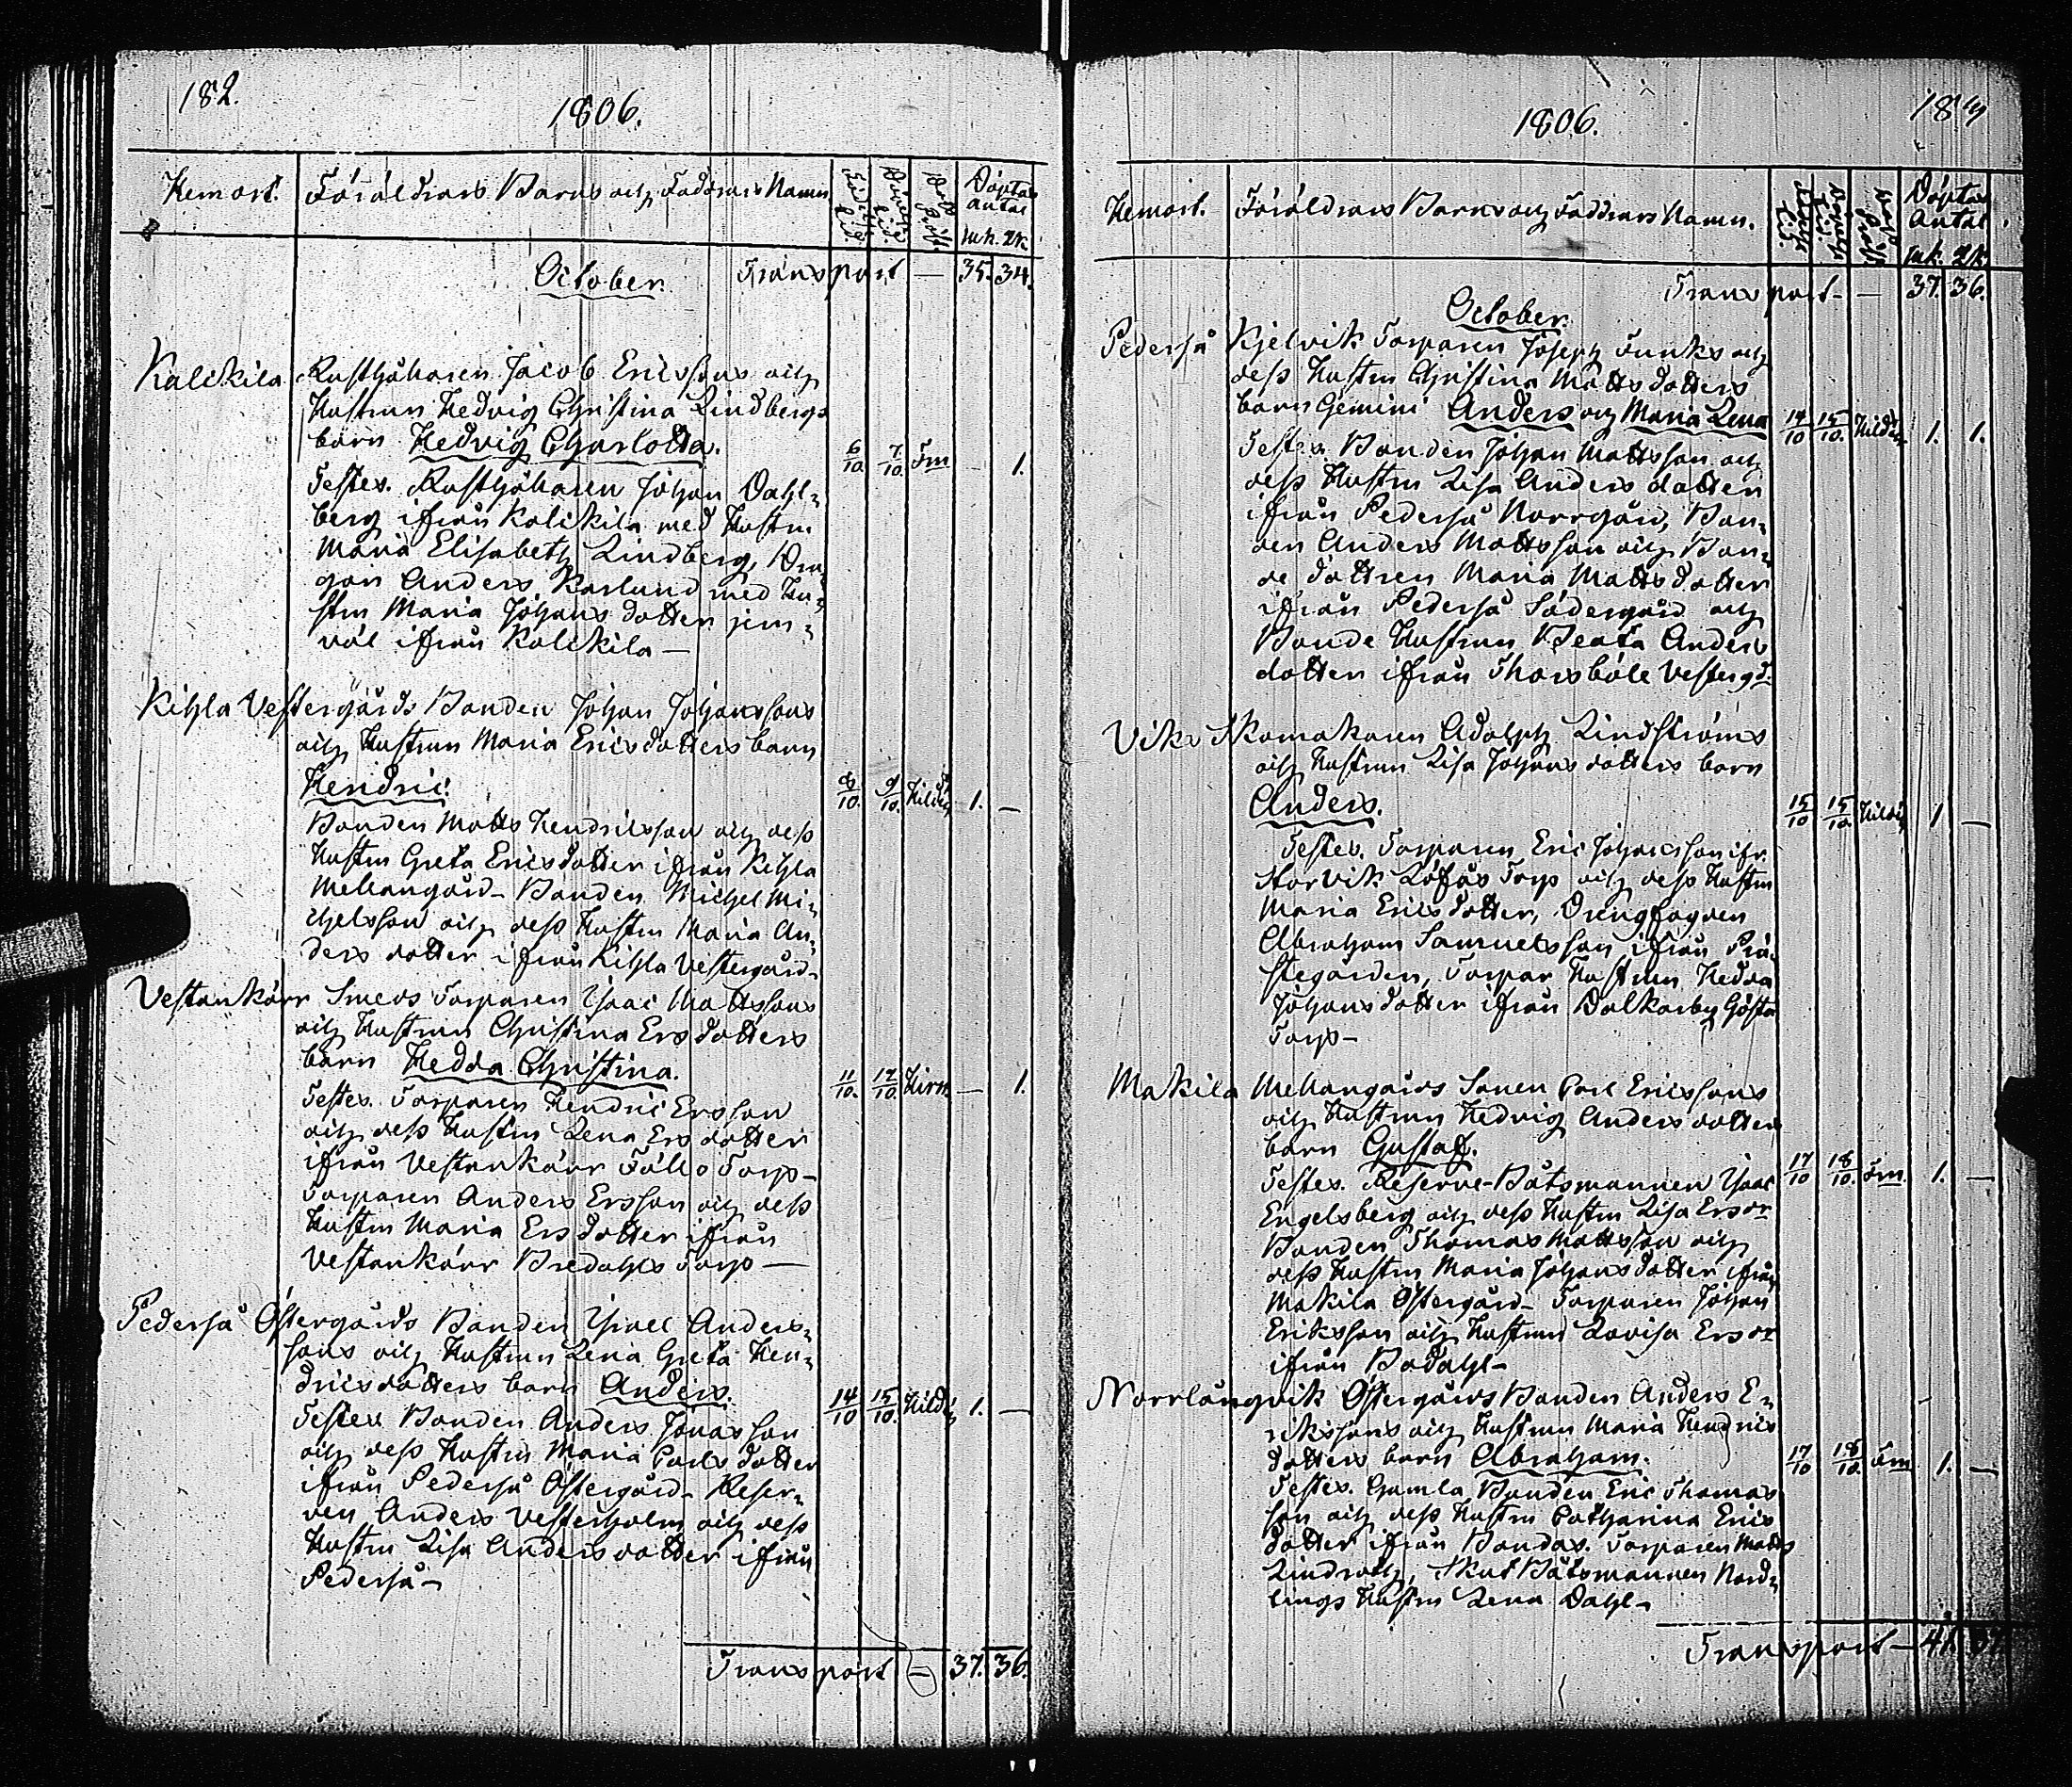 182.
1806.
Hemort. Föräldrars Barns och Faddrars Namn
Födelse tid.
Döpelse tid.
Döptas antal
mk. qk
October. Transport — 35. 34.
Kalckila Rusthållaren Jacob Ericssons och
Hustrus Hedvig Christina Lindbergs
barn Hedvig Charlotta. 6/10. 7/10. Fm — 1.
Testes. Rusthållaren Johan Dahl-
berg ifrån Kalckila med Hustru
Maria Elisabeth Lindberg, Dra-
gon Anders Karlund med Hu-
stru Maria Johans dotter jem-
väl ifrån Kalckila —
Kihla Vestergårds Bonden Johan Johanssons
och Hustrus Maria Ericsdotters barn
Hendric. 8/10. 9/10. 1. —
Bonden Matts Hendricsson och dess
Hustru Greta Ericsdotter ifrån Kihla
Mellangård – Bonden Michel Mi-
chelsson och dess Hustru Maria An-
ders dotter ifrån Kihla Vestergård –
Vestankärr Smeds Torparen Isaac Mattssons
och Hustrus Christina Ersdotters
barn Hedda Christina. 11/10. 12/10. — 1.
Testes. Torparen Hendric Ersson
och dess Hustru Lena Ersdotter
ifrån Vestankärr Torp –
Torparen Anders Ersson och dess
Hustru Maria Ersdotter ifrån
Vestankärr Bredahls Torp —
Pederså Östergårds Bonden Israel Anders-
sons och Hustrus Lena Greta Hen-
dricsdotters barn Anders. 14/10 15/10. 1. —
Testes Bonden Anders Jonasson
och dess Hustru Maria Carlsdotter
ifrån Pederså Östergård – Reser-
ven Anders Vesterholm och dess
Hustru Lisa Andersdotter ifrån
Pederså –
Transport — 37. 36.
1806.
Hemort. Föräldrars Barns och Faddrars Namn.
Döptas Antal
mk. qk
Transport — 37. 36.
October.
Pederså Kjelvik Torparen Joseph Funks och
dess Hustru Christina Mattsdotters
barn Gemini Anders och Maria Lena 14/10 15/10. 1. 1.
Testes Bonden Johan Mattsson och
dess Hustru Lisa Anders dotter
ifrån Pederså Norrgård, Bon-
den Anders Mattsson och Bon-
de dottren Maria Mattsdotter
ifrån Pederså Södergård och
Bonde Hustrun Beata Anders
dotter ifrån Thorsböle Vestergd.
Viks Skomakaren Adolph Lindströms
och Hustrus Lisa Johans dotters barn
Anders. 15/10 15/10. 1 —
Testes. Torparen Eric Johansson ifr.
Storvik Löfås Torp och dess Hustru
Maria Ericsdotter, Drengfogden
Abraham Samuelsson ifrån Prä-
stegården, Torpar Hustrun Hedda
Johansdotter ifrån Dalkarby Gösta
Torp –
Makila Mellangårds Sonen Carl Ericssons
och Hustrus Hedvig Anders dotters
barn Gustaf. 17/10 18/10. Fm. 1. —
Testes. Reserve-Båtsmannen Isaac
Engelsberg och dess Hustru Lisa Ersdr
Bonden Thomas Mattsson och
dess Hustru Maria Johansdotter ifrån
Makila Östergård – Torparen Johan
Eriksson och Hustrun Lovisa Ersdr
ifrån Bodahl –
Norrlångvik Östergårds Bonden Anders E-
rikssons och Hustrus Maria Hendrics
dotters barn Abraham. 17/10 18/10. Fm 1. —
Testes. Gamla Bonden Eric Thomas
son och dess Hustru Catharina Erics
dotter ifrån Bondas. Torparen Matts
Lindroth, Skut Båtsmannen Nord-
lings Hustru Lena Dahl –
Transport — 41.